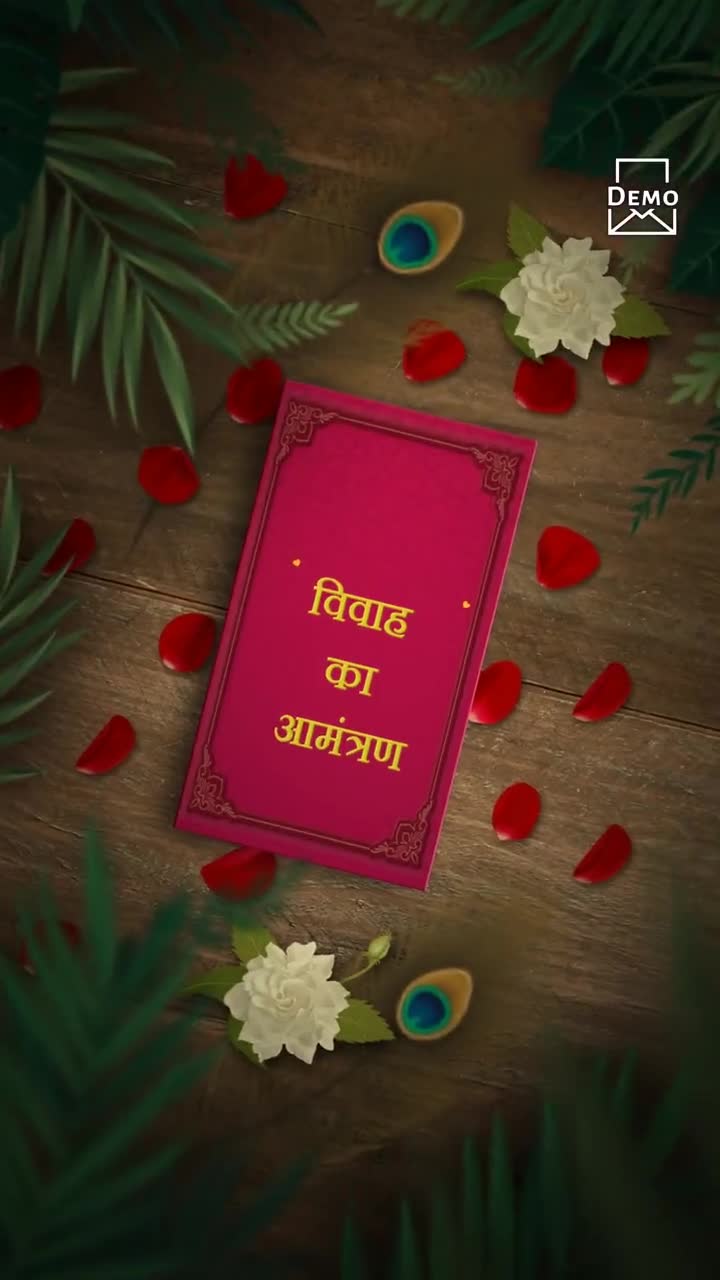 DEMO
विवाह
का
आमंत्रण